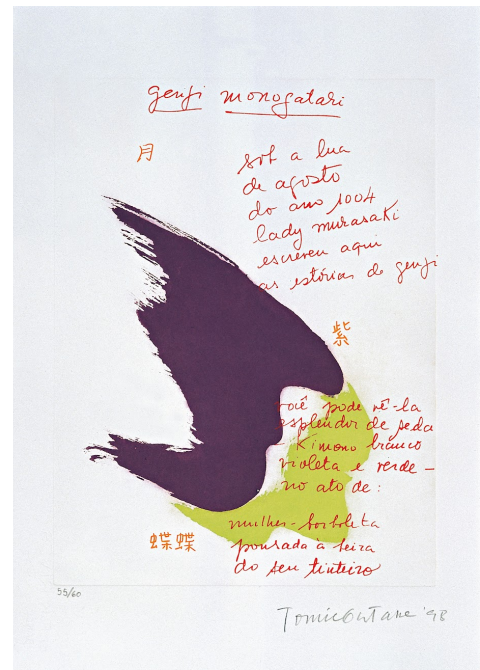 genji monogatari
月
sob a lua
de agosto
do ano 1004
lady murasaki
escreveu aqui
as estórias de genji
紫
você pode vê-la
esplendor de seda
kimono branco
violeta e verde –
no ato de:
mulher-borboleta
pousada à beira
do seu tinteiro
蝴蝶
55/60
Tomie Ohtake '98